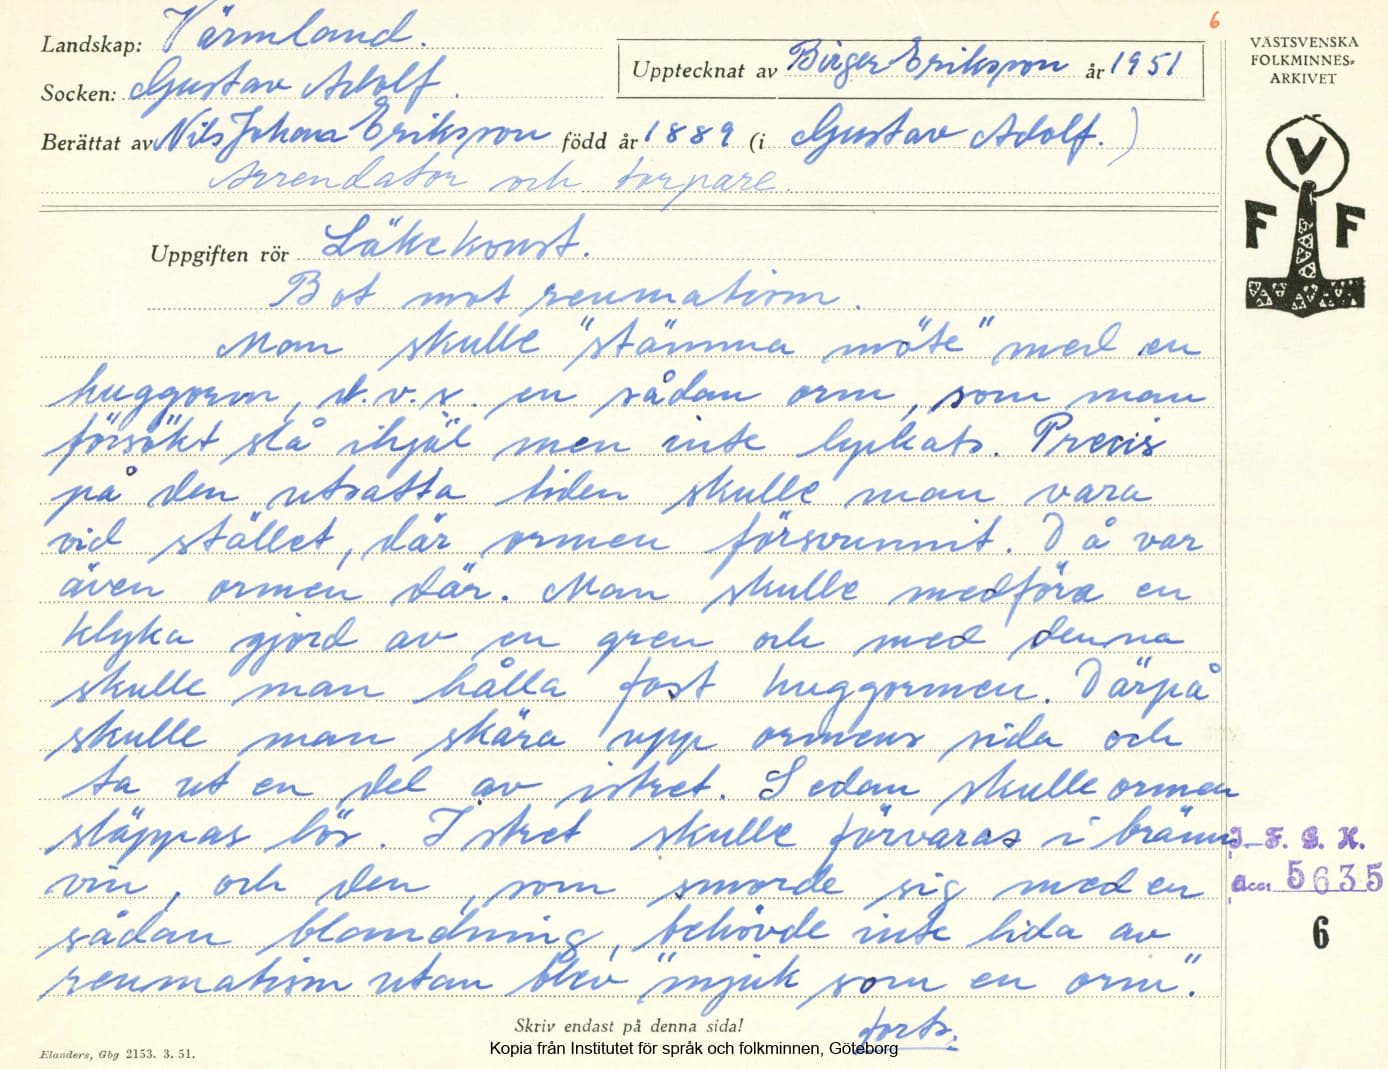 6
Landskap: Värmland.
Upptecknat av Birger Erikson år 1951
Socken: Gustav Adolf.
Berättat av Nils Johan Erikson född år 1889 (i Gustav Adolf.)
Arrendator och torpare.
Uppgiften rör Läkekonst.
Bot mot reumatism.
Man skulle "stämma möte" med en
huggorm, d.v.s. en sådan orm, som man
försökt slå ihjäl men inte lyckats. Precis
på den utsatta tiden skulle man vara
vid stället, där ormen försvunnit. Då var
även ormen där. Man skulle medföra en
klyka gjord av en gren och med denna
skulle man hålla fast huggormen. Därpå
skulle man skära upp ormens sida och
ta ut en del av istret. Sedan skulle ormen
släppas lös. Istret skulle förvaras i bränn
vin, och den, som smorde sig med en
sådan blandning, behövde inte lida av
reumatism utan blev "mjuk som en orm".
forts.
Skriv endast på denna sida!
Elanders, Gbg 2153. 3. 51.
Kopia från Institutet för språk och folkminnen, Göteborg
VÄSTSVENSKA
FOLKMINNES-
ARKIVET
V
F F
I. F. G. H.
Acc: 5635
6